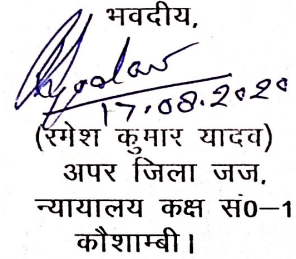 भवदीय,
17.08.2020
(रमेश कुमार यादव)
अपर जिला जज,
न्यायालय कक्ष सं0–1
कौशाम्बी।